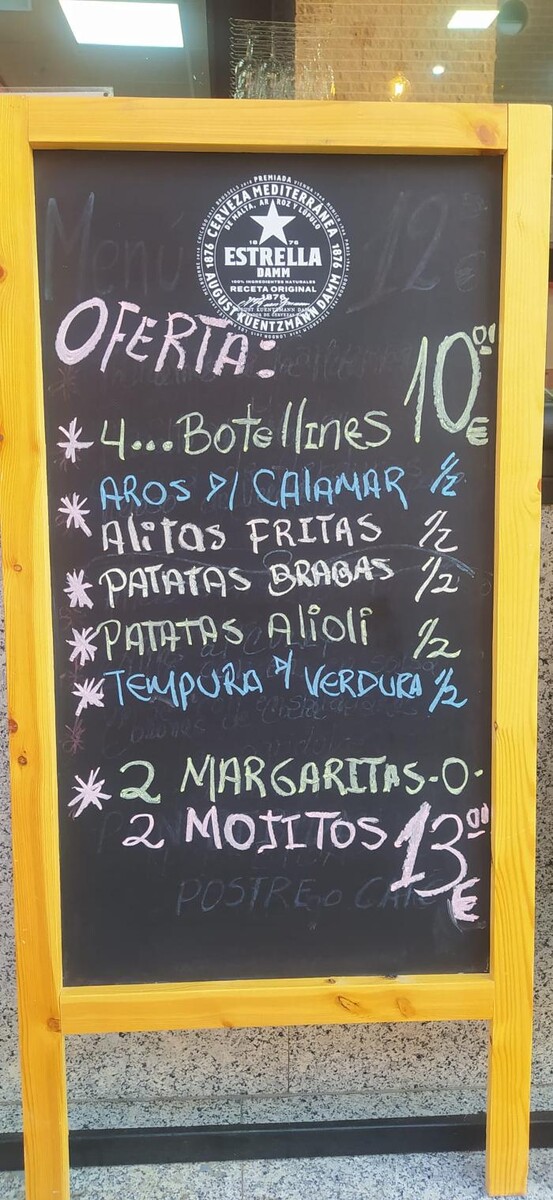 PREMIADA
CERVEZA MEDITERRANEA
DE MALTA, ARROZ Y LÚPULO
1876
ESTRELLA
DAMM
100% INGREDIENTES NATURALES
RECETA ORIGINAL
1876
AUGUST KUENTZMANN DAMM
1876
Menú 12 €
OFERTA:
* 4...Botellines 10'00 €
AROS D/ CALAMAR 1/2
* Alitas FRITAS 1/2
* PATATAS BRABAS 1/2
* PATATAS Alioli 1/2
* TEMPURA D/ VERDURA 1/2
* 2 MARGARITAS-O-
2 MOJITOS 13'00 €
POSTRE o CAFÉ